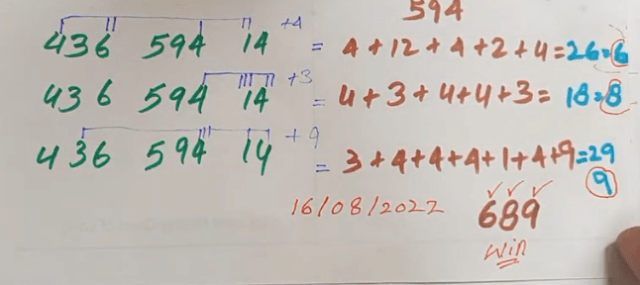 594
436 594 14 +4 = 4+12+4+2+4=26=6
436 594 14 +3 = 4+3+4+4+3= 18=8
436 594 14 +9 = 3+4+4+4+1+4+9=29
9
16/08/2022 689
win